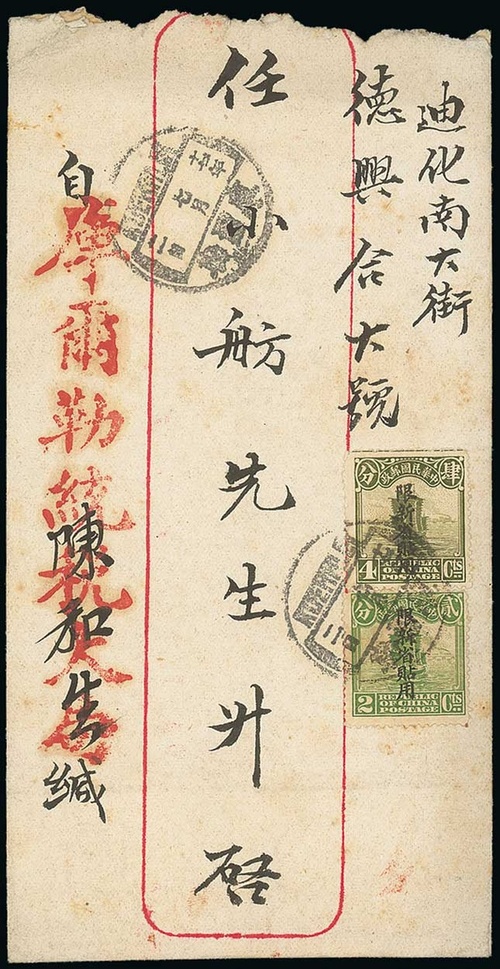 迪化南大街
德興合大號
任小舫先生升啓
自
庫爾勒統税
陳知生緘
中華民國郵政
肆
分
限新省貼用
4 Cts
REPUBLIC
OF CHINA
POSTAGE
貳
分
限新省貼用
2 Cts
REPUBLIC
OF CHINA
POSTAGE
七月